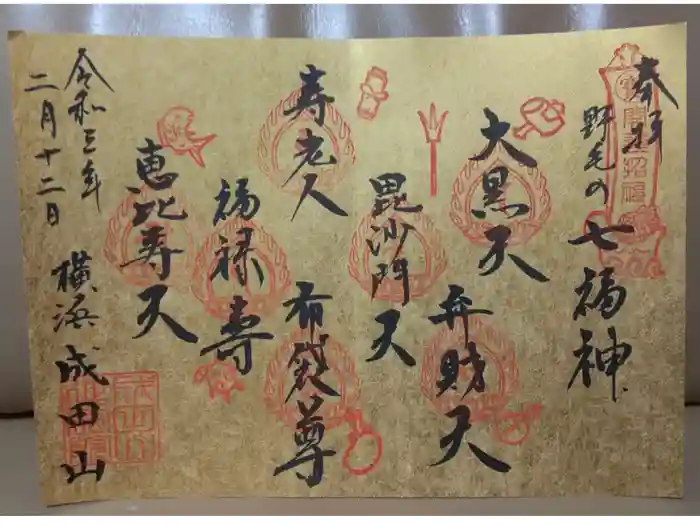 奉拝
野毛の
七福神
大黒天
弁財天
毘沙門天
寿老人
布袋尊
福禄寿
恵比寿天
令和三年
二月十二日
横浜
成田山